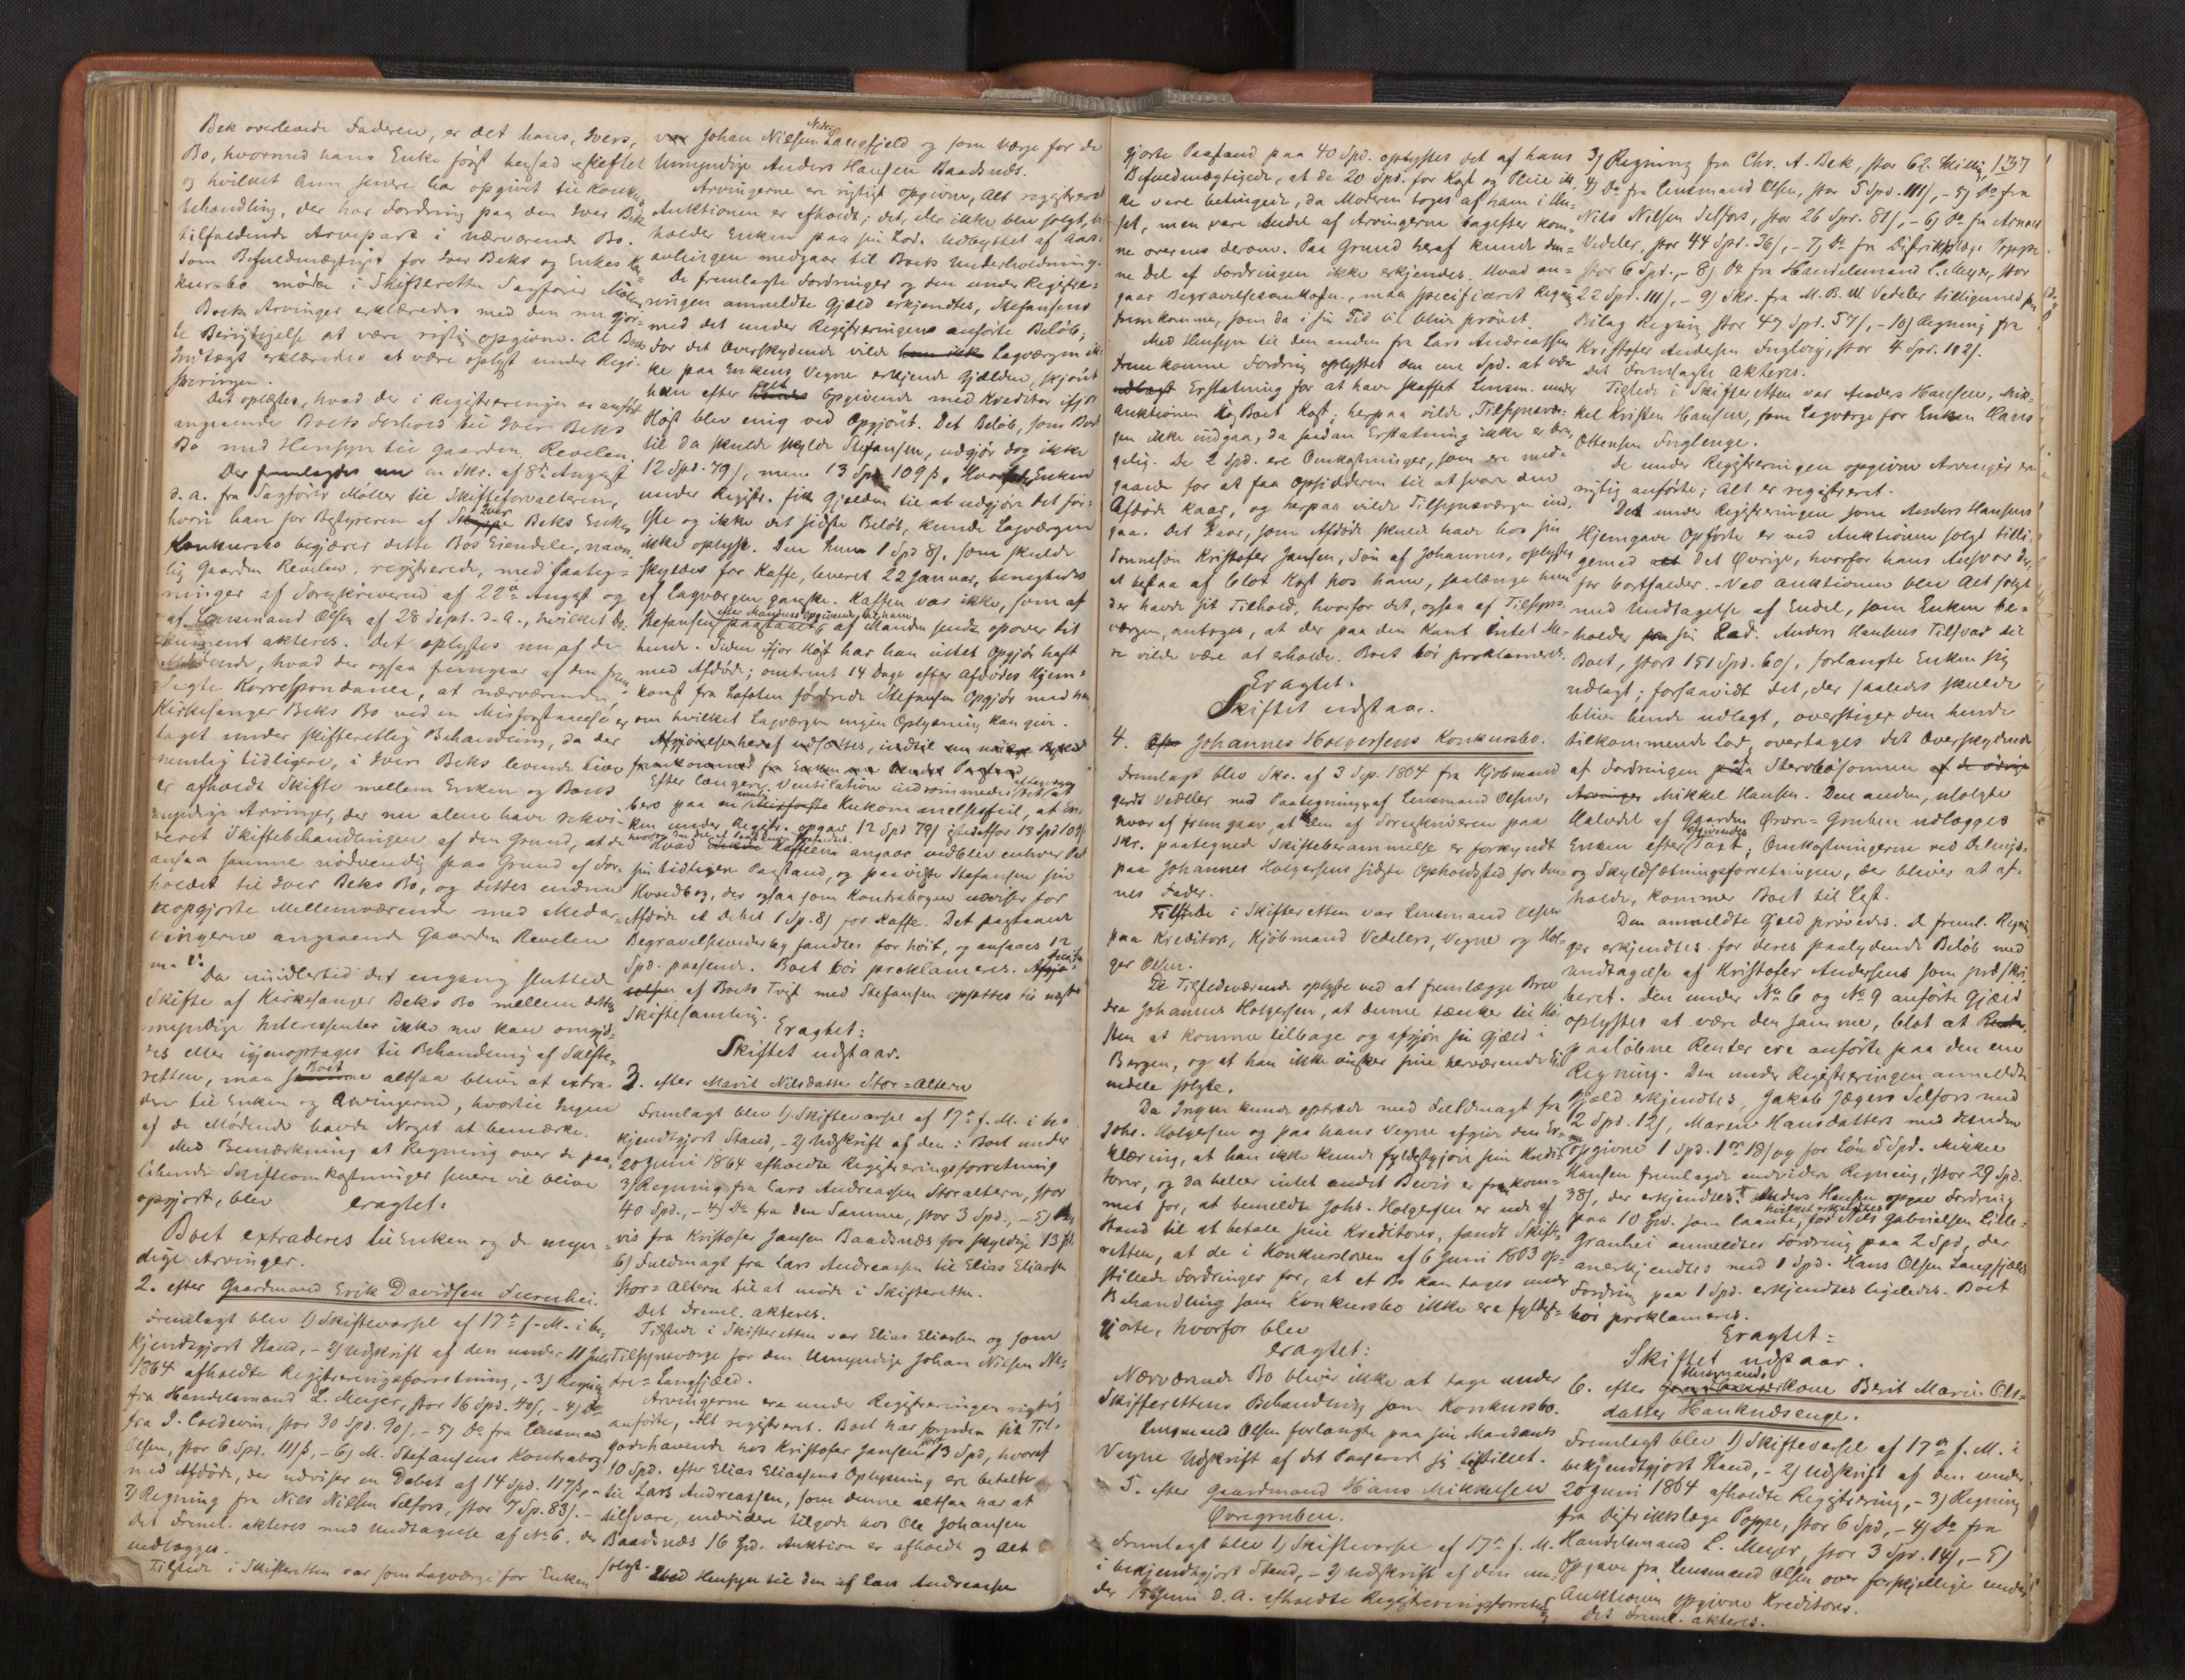 Bek overlevede Faderen, er det hans, Ivers,
Bo, hvormed hans Enke først hensad uskiftet
og hvilket hun senere har opgivet til Konkurs
behandling, der har Fordring paa den Iver Bek
tilfaldende Arvepart i nærværende Bo.
Som Befuldmægtiget for Iver Beks og Enkes Kon-
kursbo møder i Skifteretten Sagfører Møller
Boets Arvinger erklæredes med den nu gjor-
te Berigtigelse at være rigtig opgivne. Al Boets
Indtægt erklæredes at være oplyst under Regi-
streringen.
Det oplæstes, hvad der i Registreringen er anført
angaaende Boets Forhold til Iver Beks
Bo med Hensyn til Gaarden Revelen.
Der fremlagdes nu en Skr. af 8de August
d. A. fra Sagfører Møller til Skifteforvalteren,
hvori han som Bestyreren af Iver Beks Enkes
Konkursbo begjærer dette Bos Eiendele, navn-
lig Gaarden Revelen, registrerede, med Paateg-
ninger af Sorenskriveren af 22de August og
af Lensmand Olsen af 28 Sept. d. A., hvilket Do-
kument akteres. Det oplystes nu af de
Mødende, hvad der ogsaa fremgaar af den frem
lagte Korrespondance, at nærværende
Kirkesanger Beks Bo ved en Misforstaaelse er
taget under skifteretlig Behandling, da der
nemlig tidligere, i Iver Beks levende Live
er afholdt Skifte mellem Enken og Boets
myndige Arvinger, der nu alene have rekvi-
reret Skiftebehandlingen af den Grund, at de
ansaa samme nødvendig paa Grund af For-
holdet til Iver Beks Bo, og dettes endnu
uopgjorte Mellemværende med Medar-
vingerne angaaende Gaarden Revelen
m. v.
Da imidlertid det engang sluttede
Skifte af Kirkesanger Beks Bo mellem dettes
myndige Interessenter ikke nu kan omgjø-
res eller igjenoptages til Behandling af Skifte-
retten, maa Boet altsaa blive at extra-
dere til Enken og Arvingerne, hvortil Ingen
af de Mødende havde Noget at bemærke.
Med Bemærkning at Regning over de paa-
løbende Skifteomkostninger senere vil blive
opgjort, blev eragtet:
Boet extraderes til Enken og de myn-
dige Arvinger.
2. efter Gaardmand Erik Davidsen Furuhei.
Fremlagt blev 1) Skiftevarsel af 17de f. M. i be-
kjendtgjort Stand, - 2) Udskrift af den under 11 Juli
1864 afholdte Registreringsforretning, - 3) Regning
fra Handelsmand L. Meyer, stor 16 Spd. 40 ß, - 4) Do
fra J. Coldevin, stor 30 Spd. 90 ß, - 5) Do fra Lensmand
Olsen, stor 6 Spd. 111 ß, - 6) M. Stefansens Kontrabog
med Afdøde, der udviser en Debet af 14 Spd. 117 ß, -
7) Regning fra Nils Nilsen Selfors, stor 7 Sp. 83 ß. -
Det Freml. akteres med Undtagelse af No 6, der
vedlægges.
Tilstede i Skifteretten var som Lagværge for Enken
var Johan Nielsen Nedre Langfjeld og som Værge for de
Umyndige Anders Hansen Baadsnæs.
Arvingerne er rigtigt opgivne, Alt registreret
Auktionen er afholdt; det, der ikke blev solgt, be-
holder Enken paa sin Lod. Udbyttet af Aars-
avlingen medgaar til Boets Underholdning.
De fremlagte Fordringer og den under Registre-
ringen anmeldte Gjæld erkjendtes, Stefansens
med det under Registreringen anførte Beløb;
For det Overskydende vilde Lagværgen ik-
ke paa Enkens Vegne erkjende Gjælden, skjønt
han efter Opgivende med Kreditor ifjor
Høst blev enig ved Opgjøret. Det Beløb, som Boet
til da skulde skylde Stefansen, udgjør dog ikke
12 Spd. 79 ß, men 13 Spd 109 ß. Hvorfor Enken
under Registr. fik Gjælden til at udgjøre det før-
ste og ikke det sidste Beløb, kunde Lagværgen
ikke oplyse. Den Sum 1 Spd 8 ß, som skulde
skyldes for Kaffe, leveret 22 Januar, benegtedes
af Lagværgen ganske. Kaffen var ikke, som af
Stefansen paastaaet, efter Mandens Opgivende til ham, af Manden sendt opover til
hende. Siden ifjor Høst har han intet Opgjør haft
med Afdøde; omtrent 14 Dage efter Afdødes Hjem-
komst fra Lofoten fordrede Stefansen Opgjør med ham
om hvilket Lagværgen ingen Oplysning kan give.
Afgjørelsen heraf udsættes, indtil
Efter længere Ventilation indrømmedes det at
bero paa en Ihukommelsesfeil, at En-
ken under Registr. opgav 12 Spd 79 ß istedetfor 13 Spd 109 ß
Hvad Kaffeen angaar vedblev enhver Part
sin tidligere Paastand, og paaviste Stefansen sin
Hovedbog, der ogsaa som Kontrabogen udviser for
Afdøde et Debet 1 Sp. 8 ß for Kaffe. Det paastaaede
Begravelsesvederlag fandtes for høit, og ansaaes 12
Spd. passende. Boet bør proklameres. Afgjø-
relsen af Boets Tvist med Stefansen opsættes til næste
Skiftesamling.
Eragtet:
Skiftet udstaar.
3. efter Marit Nilsdatter Stor-Altern
Fremlagt blev 1) Skiftevarsel af 17de f. M. i be-
kjendtgjort Stand, - 2) Udskrift af den i Boet under
20 Juni 1864 afholdte Registreringsforretning
3) Regning fra Lars Andreassen Storaltern, stor
40 Spd., - 4) Do fra den Samme, stor 3 Spd., - 5) Be-
vis fra Kristofer Jansen Baadsnæs for skyldige 13 Spd.
6) Fuldmagt fra Lars Andreassen til Elias Eliassen
Stor-Altern til at møde i Skifteretten.
Det Freml. akteres.
Tilstede i Skifteretten var Elias Eliassen og som
Tilsynsværge for den Umyndige Johan Nielsen Ne-
dre-Langfjæld.
Arvingerne ere under Registreringen rigtig
anførte, Alt registreret. Boet har foruden sit Til-
godehavende hos Kristofer Jansen stort 13 Spd, hvoraf
10 Spd. efter Elias Eliassens Oplysning ere betalte
til Lars Andreassen, som denne altsaa har at
tilsvare, endvidere tilgode hos Ole Johansen
Baadsnæs 16 Spd. Auktion er afholdt og Alt
solgt. Med Hensyn til den af Lars Andreassen
gjorte Paastand paa 40 Spd. oplystes det af hans
Befuldmægtigede, at de 20 Spd. for Kost og Pleie ik-
ke vare betingede, da Moderen toges af ham i Hu-
set, men vare Endel af Arvingerne bagefter kom-
ne overens derom. Paa Grund heraf kunde den-
ne Del af Fordringen ikke erkjendes. Hvad an-
gaar Begravelsesomkostn., maa specificeret Regning
fremkomme, som da i sin Tid vil blive prøvet.
Med Hensyn til den anden fra Lars Andreassen
fremkomne Fordring oplystes den ene Spd. at være
Erstatning for at have skaffet Lensm. under
Auktionen i Boet Kost; herpaa vilde Tilsynsvær-
gen ikke indgaa, da saadan Erstatning ikke er brug-
gelig. De 2 Spd. ere Omkostninger, som ere med-
gaaede for at faa Opsidderen til at svare den
Afdøde Kaar, og herpaa vilde Tilsynsværgen ind-
gaa. Det Kaar, som Afdøde skulde have hos sin
Sønnesøn Kristofer Jansen, Søn af Johannes, oplystes
at bestaa af blot Kost hos ham, saalænge hun
der havde sit Tilhold, hvorfor det, ogsaa af Tilsyns-
værgen, antoges, at der paa den Kant Intet Me-
re vilde være at erholde. Boet bør proklameres.
Eragtet:
Skiftet udstaar.
4. Johannes Holgersens Konkursbo.
Fremlagt blev Skr. af 3 Sep. 1864 fra Kjøbmand
Gerdt Vedeler med Paategning af Lensmand Olsen,
hvoraf fremgaar, at den af Sorenskriveren paa
Skr. paategnede Skifteberammelse er forkyndt
paa Johannes Holgersens sidste Opholdssted for den-
nes Fader.
Tilstede i Skifteretten var Lensmand Olsen
paa Kreditors, Kjøbmand Vedelers, Vegne og Hol-
ger Olsen.
De Tilstedeværende oplyste ved at fremlægge Brev
fra Johannes Holgersen, at denne tænker til Hø-
sten at komme tilbage og afgjøre sin Gjæld i
Bergen, og at han ikke ønsker sine herværende Ei-
endele solgte.
Da Ingen kunde optræde med Fuldmagt fra
Johs. Holgersen og paa hans Vegne afgive den Er-
klæring, at han ikke kunde fyldestgjøre sine Kredi-
torer, og da heller intet andet Bevis er fremkom-
met for, at bemeldte Johs. Holgersen er ude af
Stand til at betale sine Kreditorer, fandt Skifte-
retten, at de i Konkursloven af 6 Juni 1863 op-
stillede Fordringer for, at et Bo kan tages under
Behandling som Konkursbo ikke ere fyldest-
gjorte, hvorfor blev
eragtet:
Nærværende Bo bliver ikke at tage under
Skifterettens Behandling som Konkursbo.
Lensmand Olsen forlangte paa sin Mandants
Vegne Udskrift af det Passerede sig tilstillet.
5. efter Gaardmand Hans Mikkelsen
Øvregruben.
Fremlagt blev 1) Skiftevarsel af 17de f. M.
i bekjendtgjort Stand, - 2) Udskrift af den un-
der Juni d. A. afholdte Registreringsforretning
137
3) Regning fra Chr. A. Bek, stor 62 Skilling,
4) Do fra Lensmand Olsen, stor 5 Spd. 111 ß, - 5) Do fra
Nils Nilsen Selfors, stor 26 Spd. 81 ß, - 6) Do fra
Vedeler, stor 44 Spd. 36 ß, - 7) Do fra Distriktslæge Poppe
stor 6 Spd., - 8) Do fra Handelsmand L. Meyer, stor
22 Spd. 111 ß, - 9) Skr. fra M. B. W. Vedeler tilligemed
Bilag Regning stor 47 Spd. 57 ß, - 10) Regning fra
Kristofer Andersen Inglvig, stor 4 Spd. 102 ß.
Det Fremlagte akteres.
Tilstede i Skifteretten var Anders Hansen, Mik-
kel Kristen Hansen, som Lagværge for Enken Hans
Ottensen Fuglenge.
De under Registreringen opgivne Arvinger er
rigtig anførte; Alt er registreret.
Det under Registreringen som Anders Hansens
Hjemgave Opførte er ved Auktionen solgt tilli-
gemed det Øvrige, hvorfor hans Ansvar der-
for bortfalder. - Ved Auktionen blev Alt solgt
med Undtagelse af Endel, som Enken be-
holder paa sin Lod. Anders Hansens Tilsvar til
Boet, stort 151 Spd. 60 ß, forlangte Enken sig
udlagt; forsaavidt det, der saaledes skulde
blive hende udlagt, overstiger den hende
tilkommende Lod, overtages det Overskydende
af Fordringen paa Stervbosønnen af de øvrige
Arvinger Mikkel Hansen. Den anden, usolgte
Halvdel af Gaarden Øvre-Gruben udlægges
Enken efter Taxt; Omkostningerne ved Delings-
og Skyldsætningsforretningen, der bliver at af-
holde, kommer Boet til Last.
Den anmeldte Gjæld prøvedes. De freml. Regnin-
ger erkjendtes for deres paalydende Beløb med
Undtagelse af Kristofer Andersens som præskri-
beret. Den under No 6 og No 9 anførte Gjæld
oplystes at være den samme, blot at
paaløbne Renter ere anførte paa den ene
Regning. Den under Registreringen anmeldte
Gjæld erkjendtes, Jakob Jægers Selfors med
2 Spd. 12 ß, Maren Hansdatters med Hendes
opgivne 1 Spd. 1 ort 18 ß og for Løn 5 Spd. Mikkel
Hansen fremlagde endvidere Regning, stor 29 Spd.
38 ß, der erkjendtes. Anders Hansen opgav Fordring
paa 10 Spd. som laante, hvilket erkjendtes for Nils Gabrielsen Lille-
Granhei anmeldtes Fordring paa 2 Spd, der
anerkjendtes med 1 Spd. Hans Olsen Langfjælds
Fordring paa 1 Spd. erkjendtes ligeledes. Boet
bør proklameres.
Eragtet:
Skiftet udstaar.
6. efter Husmandskone Berit Marie Ols-
datter Hauknæsenge.
Fremlagt blev 1) Skiftevarsel af 17de f. M. i
bekjendtgjort Stand, - 2) Udskrift af den under
20 Juni 1864 afholdte Registrering, - 3) Regning
fra Distriktslæge Poppe, stor 6 Spd, - 4) Do fra
Handelsmand L. Meyer, stor 3 Spd. 14 ß, - 5)
Opgave fra Lensmand Olsen over forskjellige under
Auktionen opgivne Kreditorer.
Det Freml. akteres.